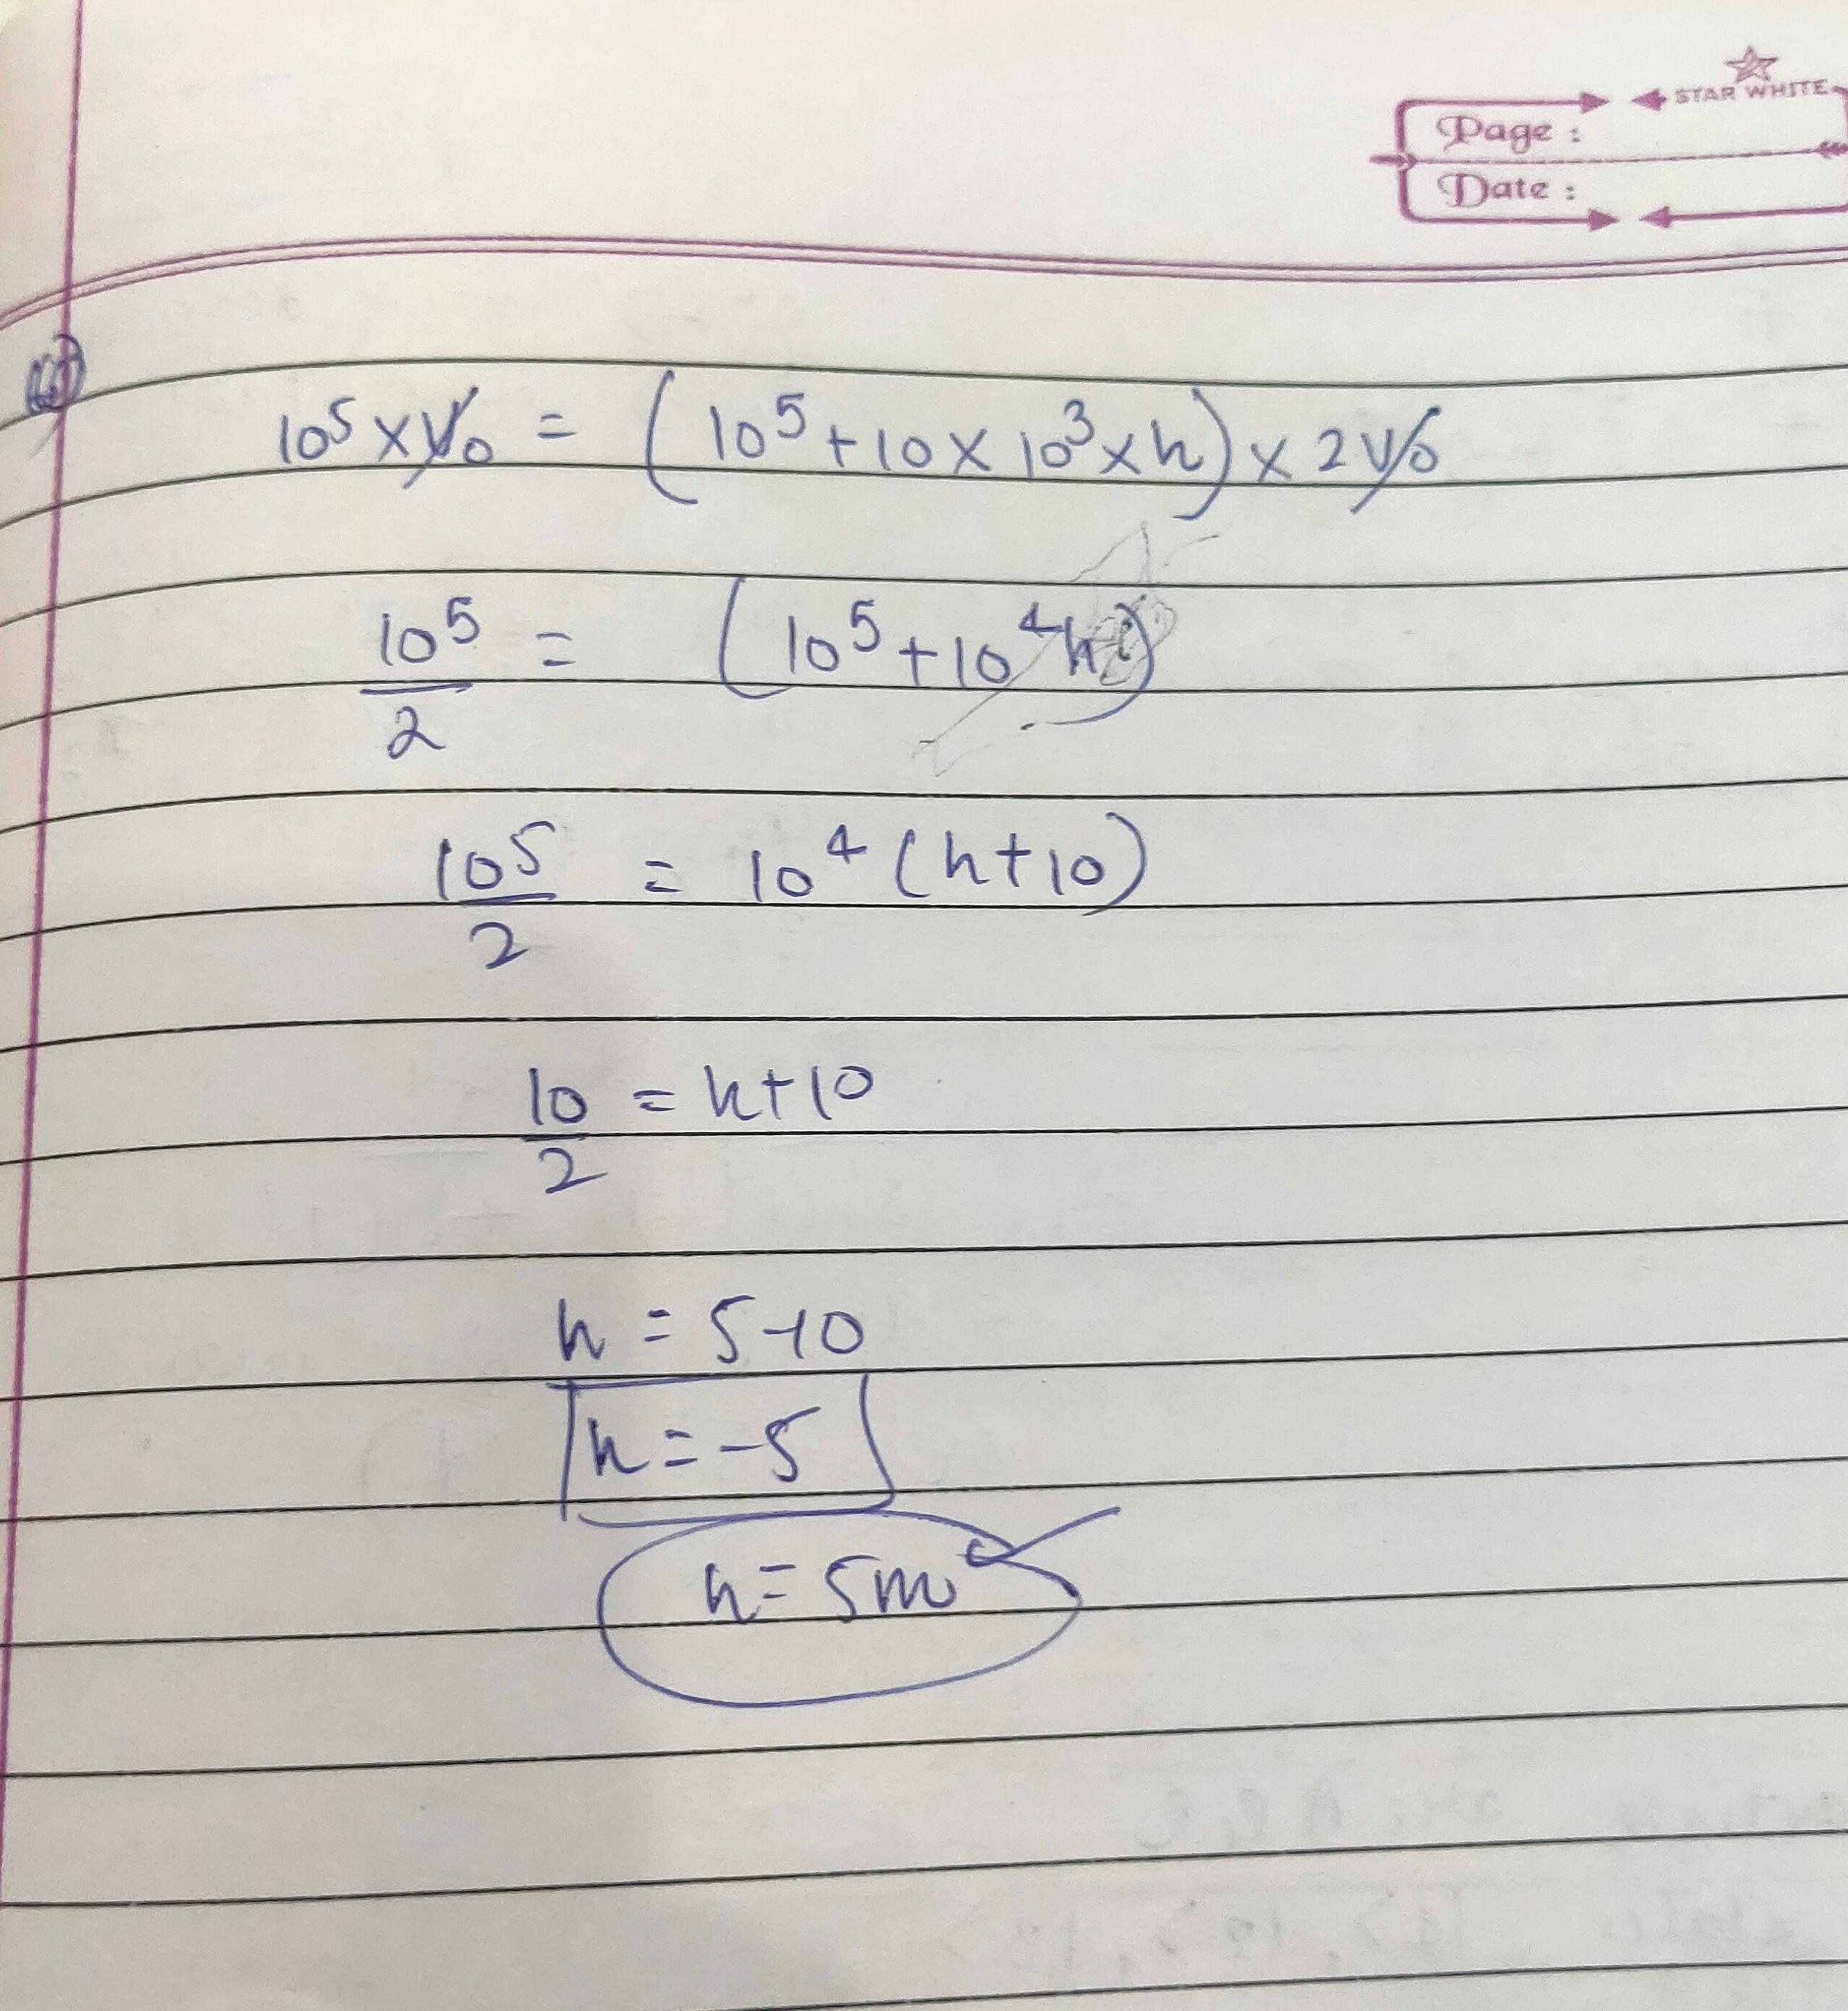 STAR WHITE
Page :
Date :
10⁵ × V₀ = (10⁵ + 10 × 10³ × h) × 2V₀
10⁵/2 = (10⁵ + 10⁴h)
10⁵/2 = 10⁴ (h+10)
10/2 = h+10
h = 5-10
h = -5
h = 5m